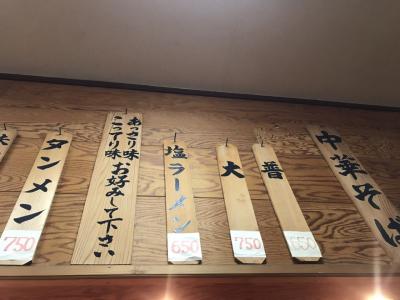 中華そば
普
650
大
750
塩ラーメン
650
あっさり味
こってり味、お好みして下さい
タンメン
750